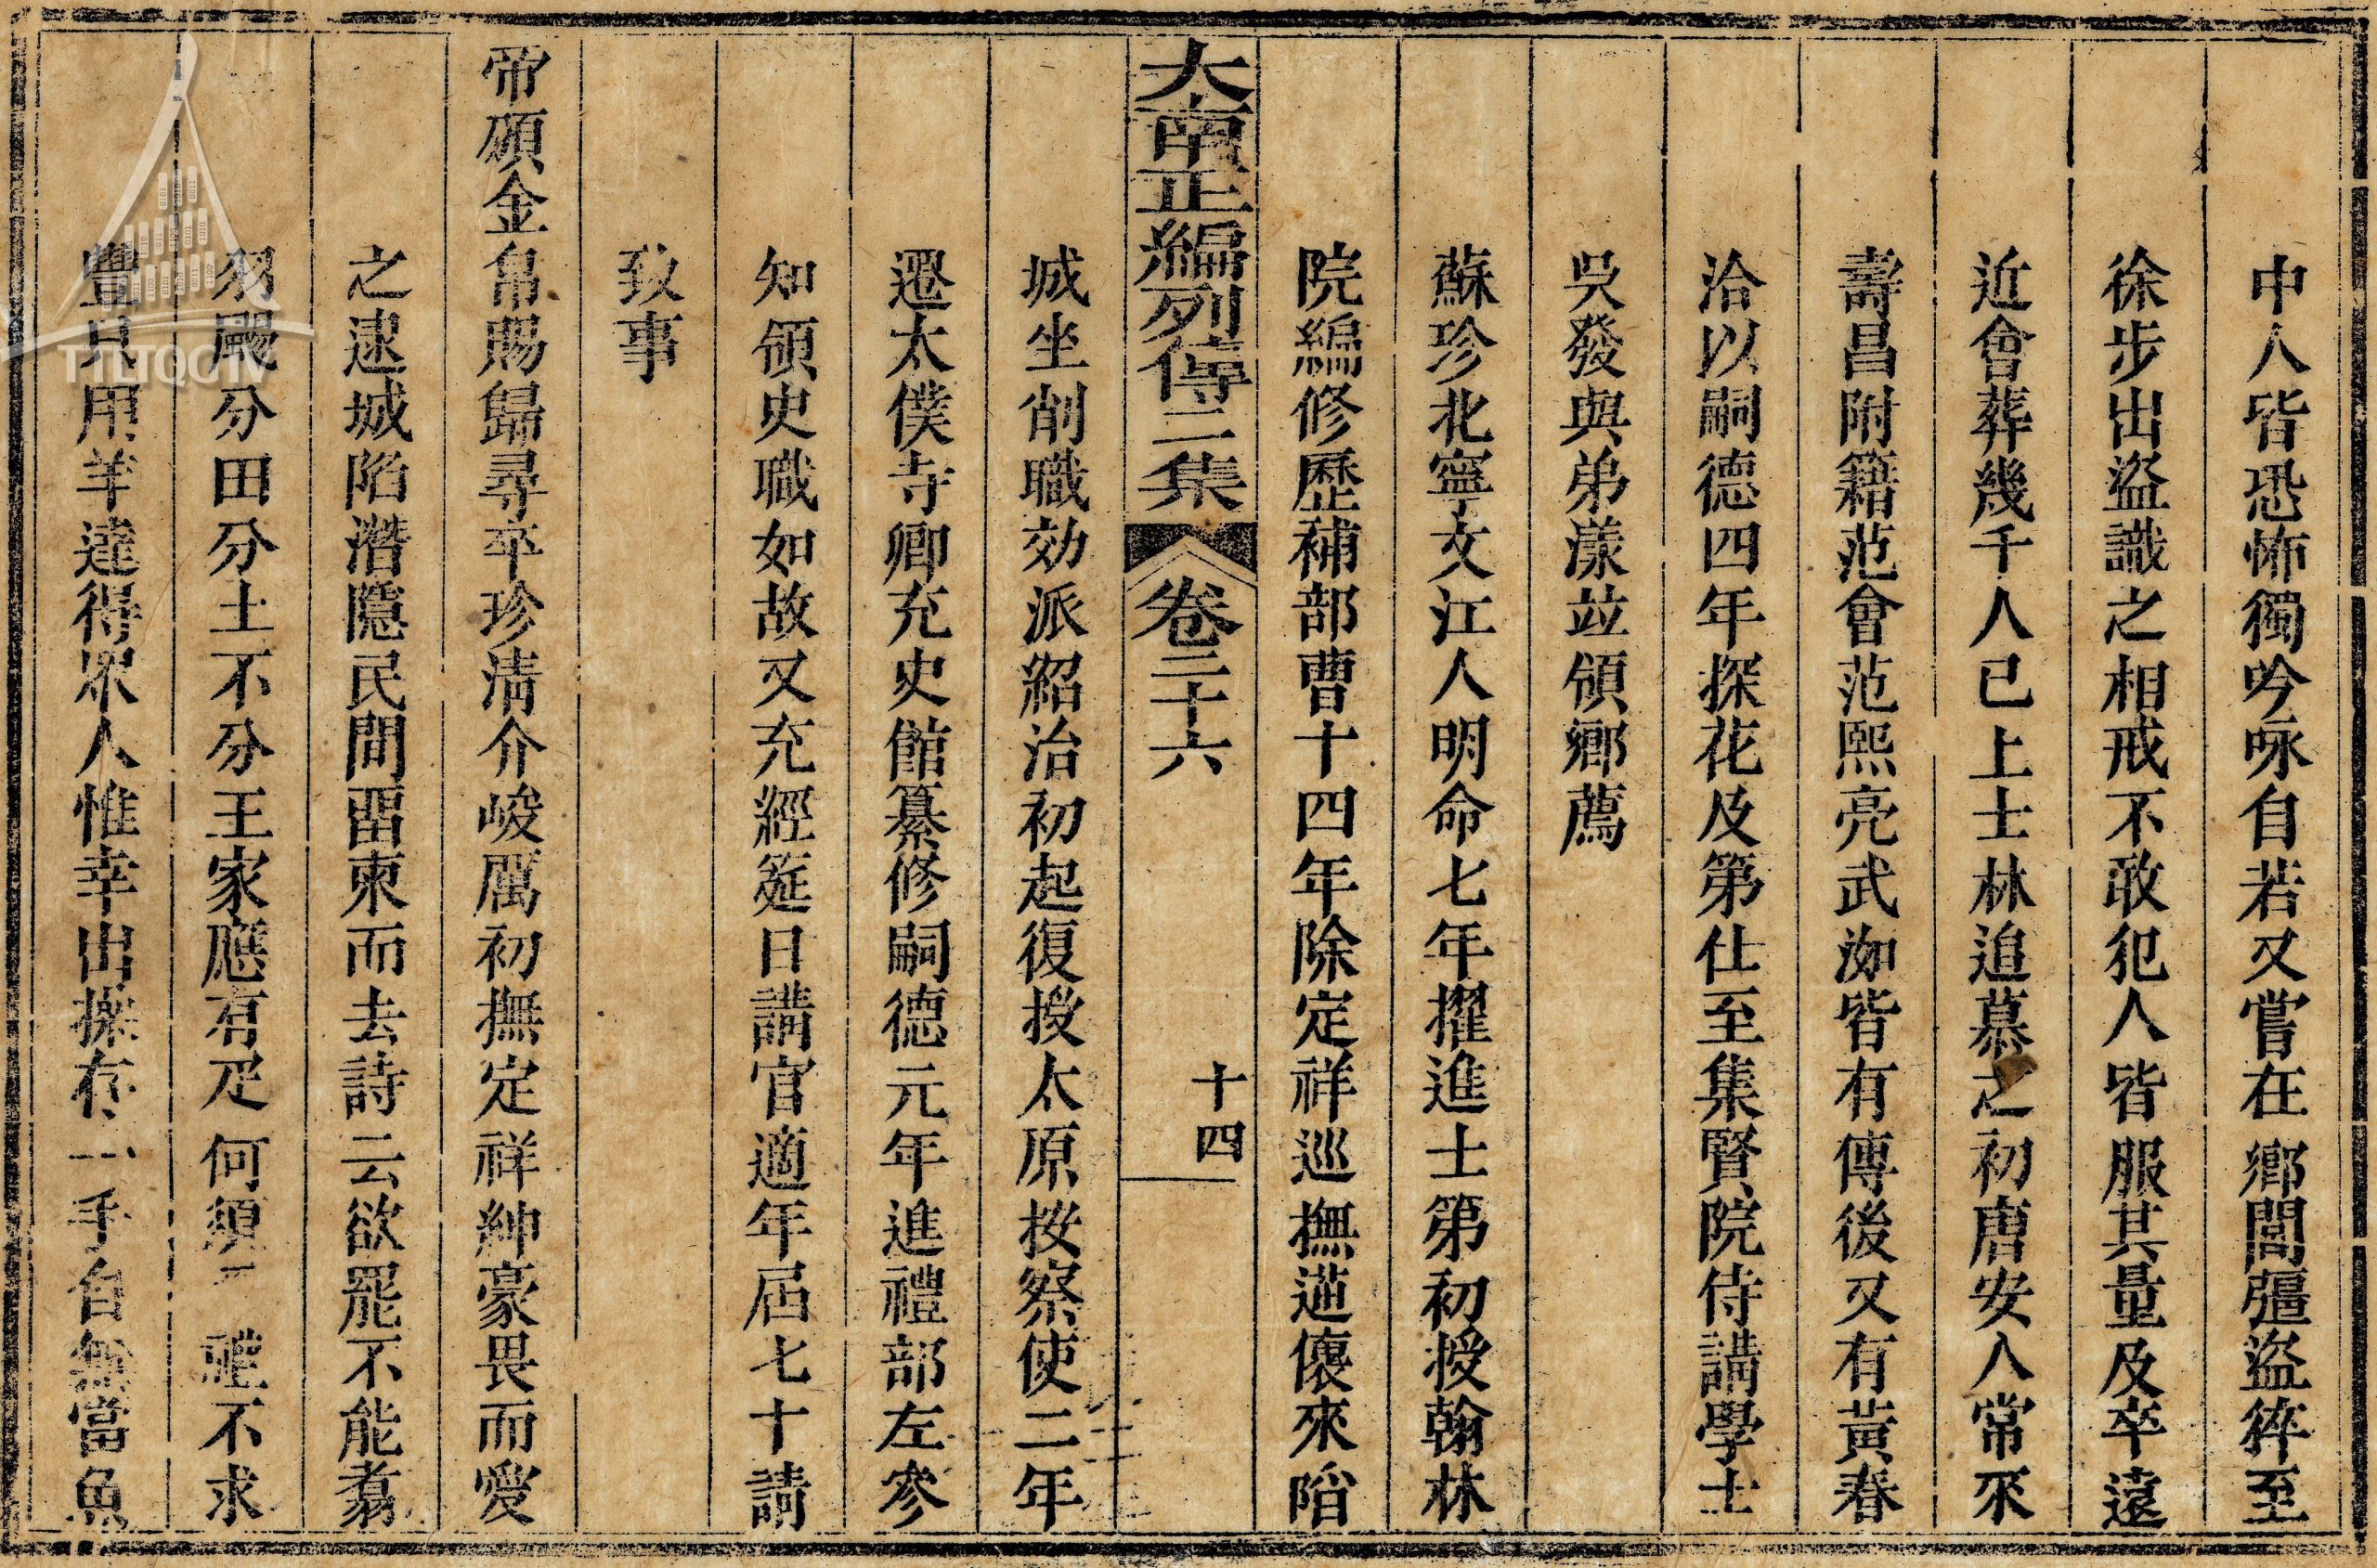 中人皆恐怖獨吟咏自若又嘗在鄉閭彊盜猝至
徐步出盜識之相戒不敢犯人皆服其量及卒遠
近會葬幾千人已上士林追慕之初唐安人常來
壽昌附籍范會范熙亮武泇皆有傳後又有黃春
洽以嗣德四年探花及第仕至集賢院侍講學士
吳發與弟漾竝領鄉薦
蘇珍北寧文江人明命七年擢進士第初授翰林
院編修歷補部曹十四年除定祥巡撫逆儴來陷
大南正編列傳二集 卷二十六 十四
城坐削職効派紹治初起復授太原按察使二年
遷太僕寺卿充史館纂修嗣德元年進禮部左參
知領史職如故又充經筵日講官適年屆七十請
致事
帝碩金帛賜歸尋卒珍清介峻厲初撫定祥紳豪畏而愛
之逮城陷潛隱民間畱柬而去詩云欲罷不能翥
羽颺分田分土不分王家應有疋何須 不求
豐只用羊達得眾人惟幸出 存一手自 當魚
TTLTQGIV